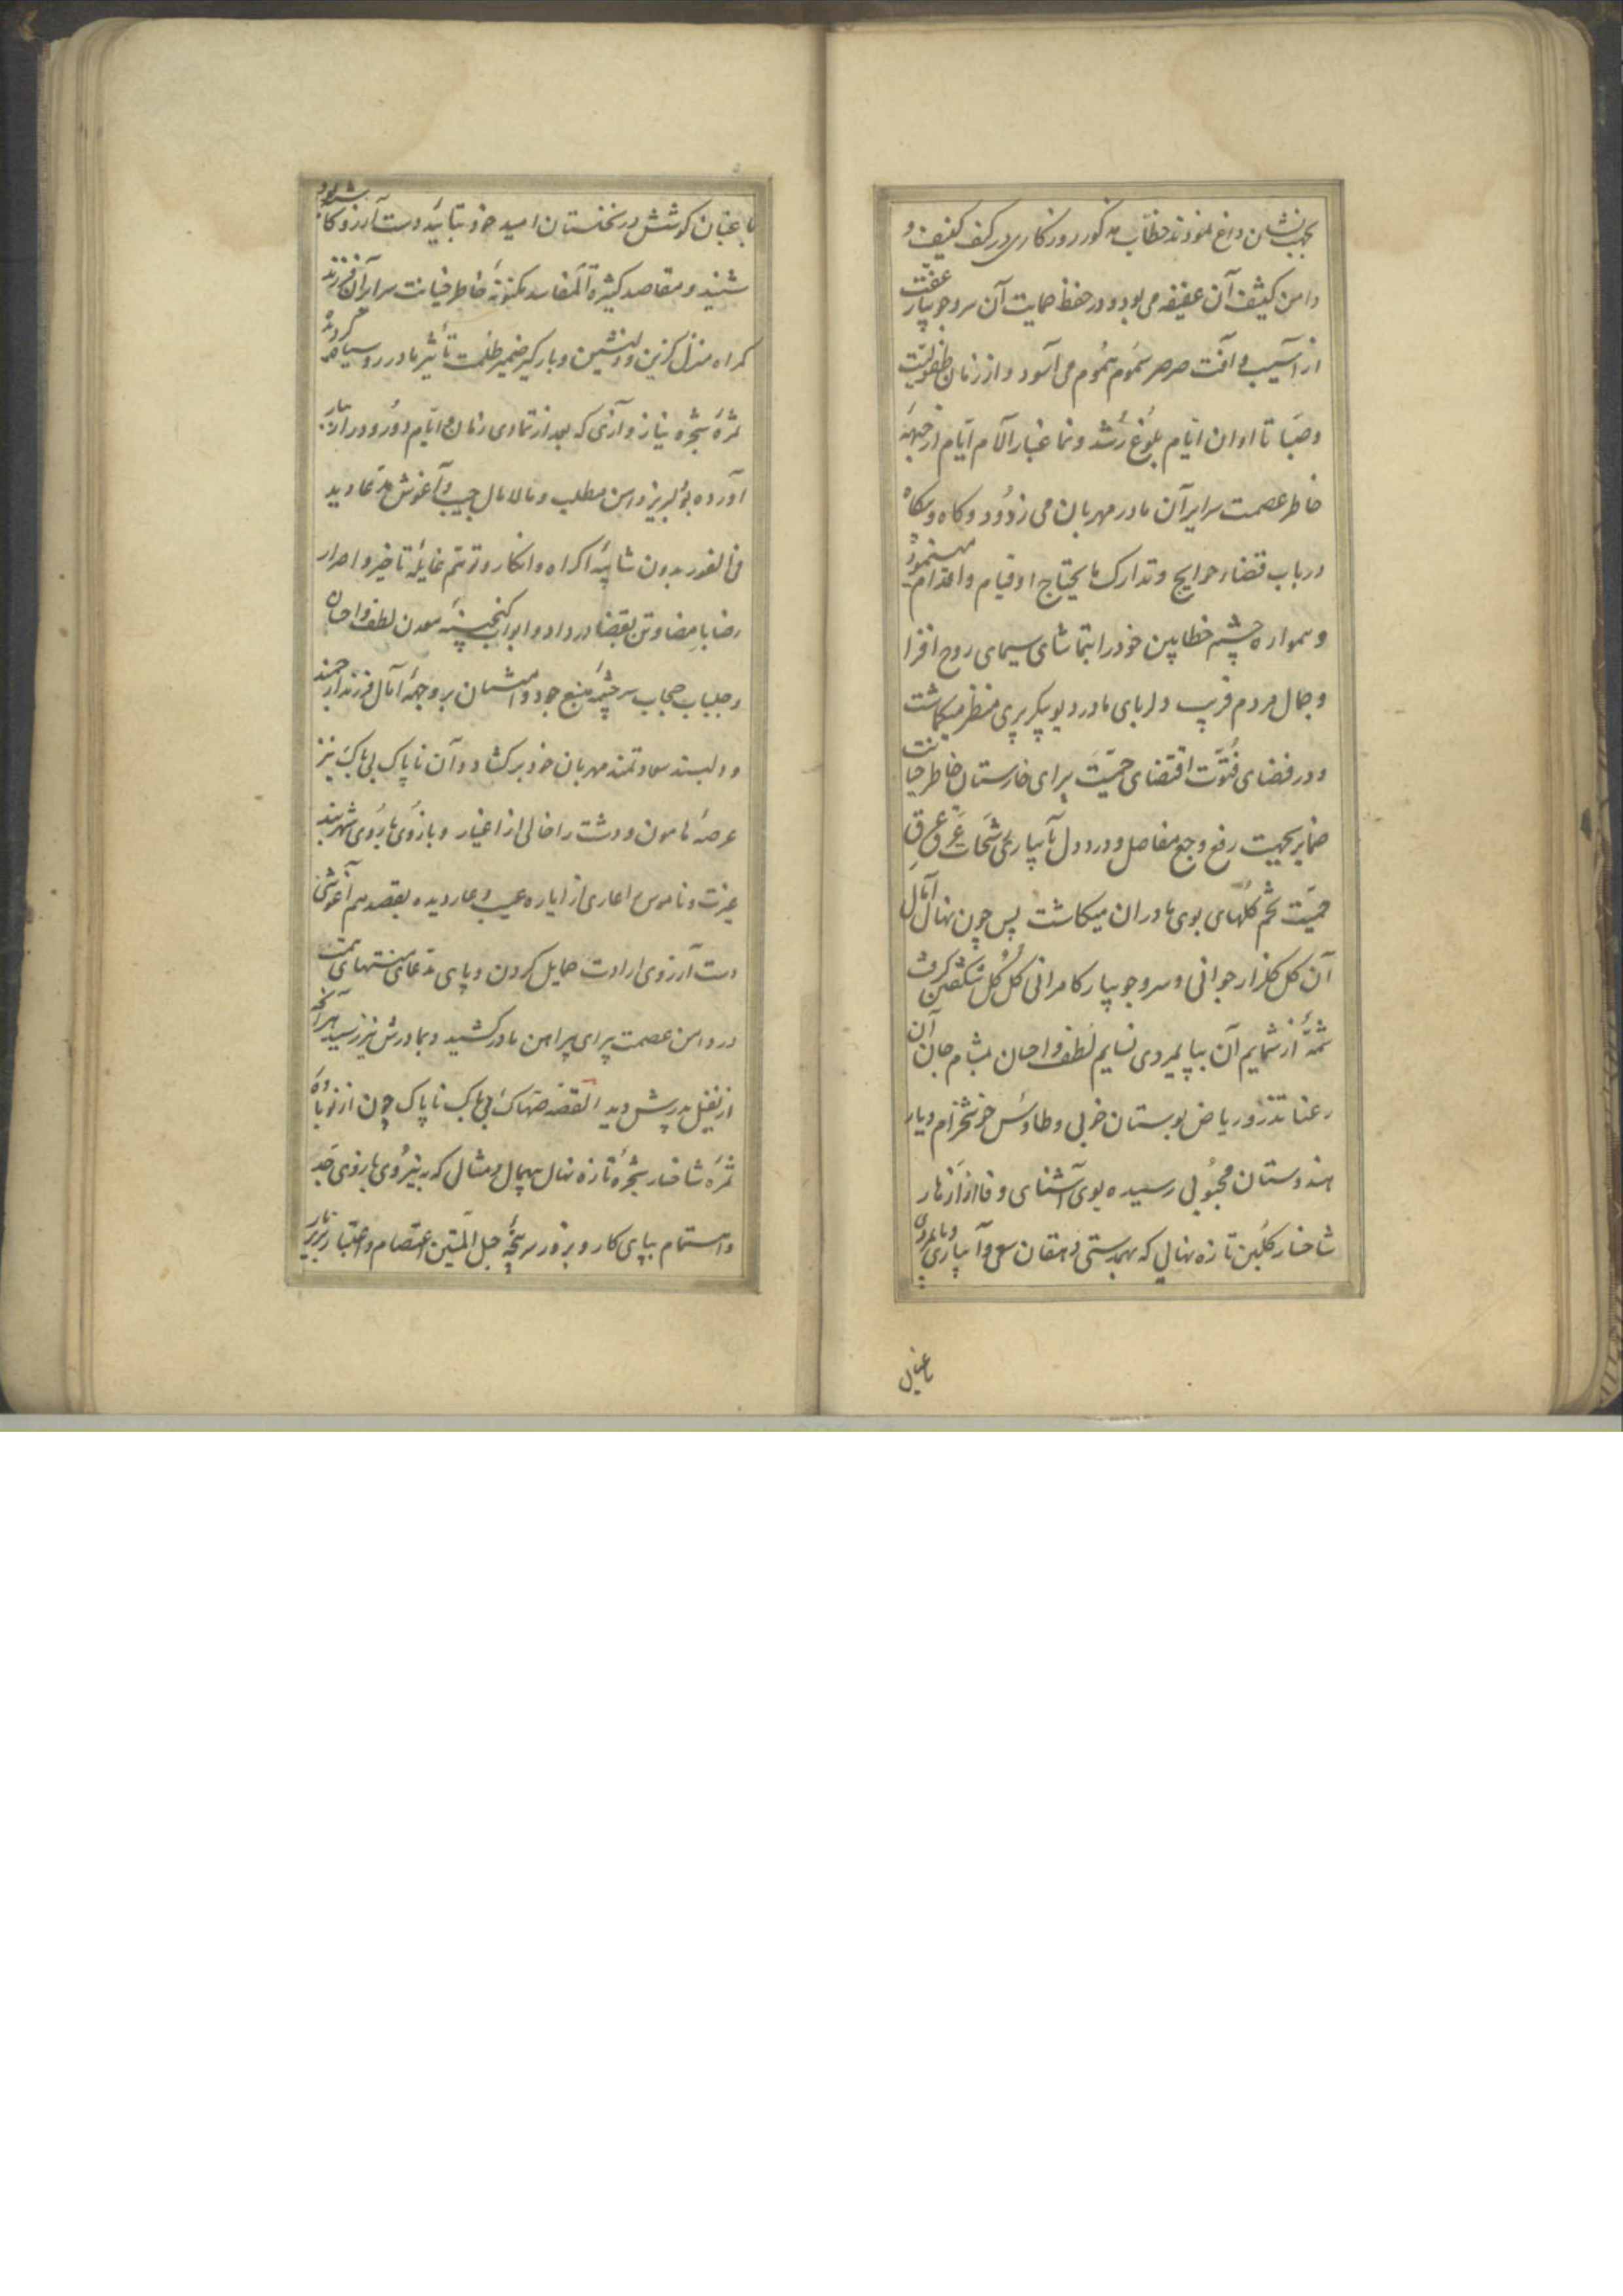 بجهت نشان داغ نمودند خطاب مذکور روزکاری در کنف کنیف و
دامن کثیف آن عفیفه می بود و در حفظ حمایت آن سرو جویبار عفت
از آسیب و آفت صرصر سموم هموم می آسود و از زمان طفولیت
و صبا تا اوان ایام بلوغ رشد و نما غبار آلام ایام از جبهه
خاطر عصمت سرایر آن مادر مهربان می زدود و کاه و بیکاه
در باب قضاء حوایج و تدارک مایحتاج او قیام و اقدام مینمود
و همواره چشم خطابین خود را بتماشای سیمای روح افزا
و جمال مردم فریب دلربای مادر دیو پیکر پری منظر میکماشت
و در فضای فتوت اقتضای حمیت برای خارستان خاطر خیانت
ضمایر بجهت رفع وجع مفاصل و درد دل بآبیاری رشحات عرق
حمیت تخم کلهای بوی مادران میکاشت پس چون نهال آمال
آن کل کلزار جوانی و سرو جویبار کامرانی کل کل شکفتن کرفت
شمه از شمایم آن بپایمردی نسایم لطف و احسان بمشام جان آن
رعنا تذرو ریاض بوستان خوبی و طاوس خوشخرام دیار
هندوستان محبوبی رسیده بوی آشنای وفا از ازهار
شاخسار کلبن تازه نهالی که بهمدستی دهقان سعی و آبیاری و پایمردی
باغبان
باغبان کوشش در نخلستان امید خود بتابید دست آرزو کاشته بود
شنید و مقاصد کثیرة المفاسد مکنونه خاطر خیانت سرایر آن فرزند
کمراه منزل کزین و دلنشین و بارکیر ضمیر ظلمت تأثیر مادر رو سیاه کردید
ثمره شجره نیاز و آزی که بعد از تمادی زمان و ایام دور و دراز ببار
آورده بود لبریز دامن مطلب و مالامال جیب و آغوش مدعا دید
فی الفور بدون شایبه اکراه و انکار و توهم غایله تأخیر و اصرار
رضا بامضا و تن بقضا در داد و ابواب کنجینه معدن لطف و احسان
و جلباب حجاب سرچشمه منبع جود و امتنان بر وجه آمال فرزند ارجمند
و دلبند سعادتمند مهربان خود برکشاد و آن ناپاک بی باک نیز
عرصه هامون و دشت را خالی از اغیار و بازوی باروی شهربند
عزت و ناموس را عاری از اباره عیب و عار دیده بقصد هم آغوشی
دست آرزوی ارادت حمایل کردن و پای مدعای منتهای همت
در دامن عصمت پیرای پیراهن مادر کشید و بمادرش نیز رسید هر آنچه
از نغیل پدرش دید القصه ضحاک بی باک ناپاک چون از نوباوه
ثمره شاخسار شجره تازه نهال بیهمال و مثال که به نیروی بازوی جد
و اهتمام بپای کار و بزور سر پنجه حبل المتین اعتصام و اختیار